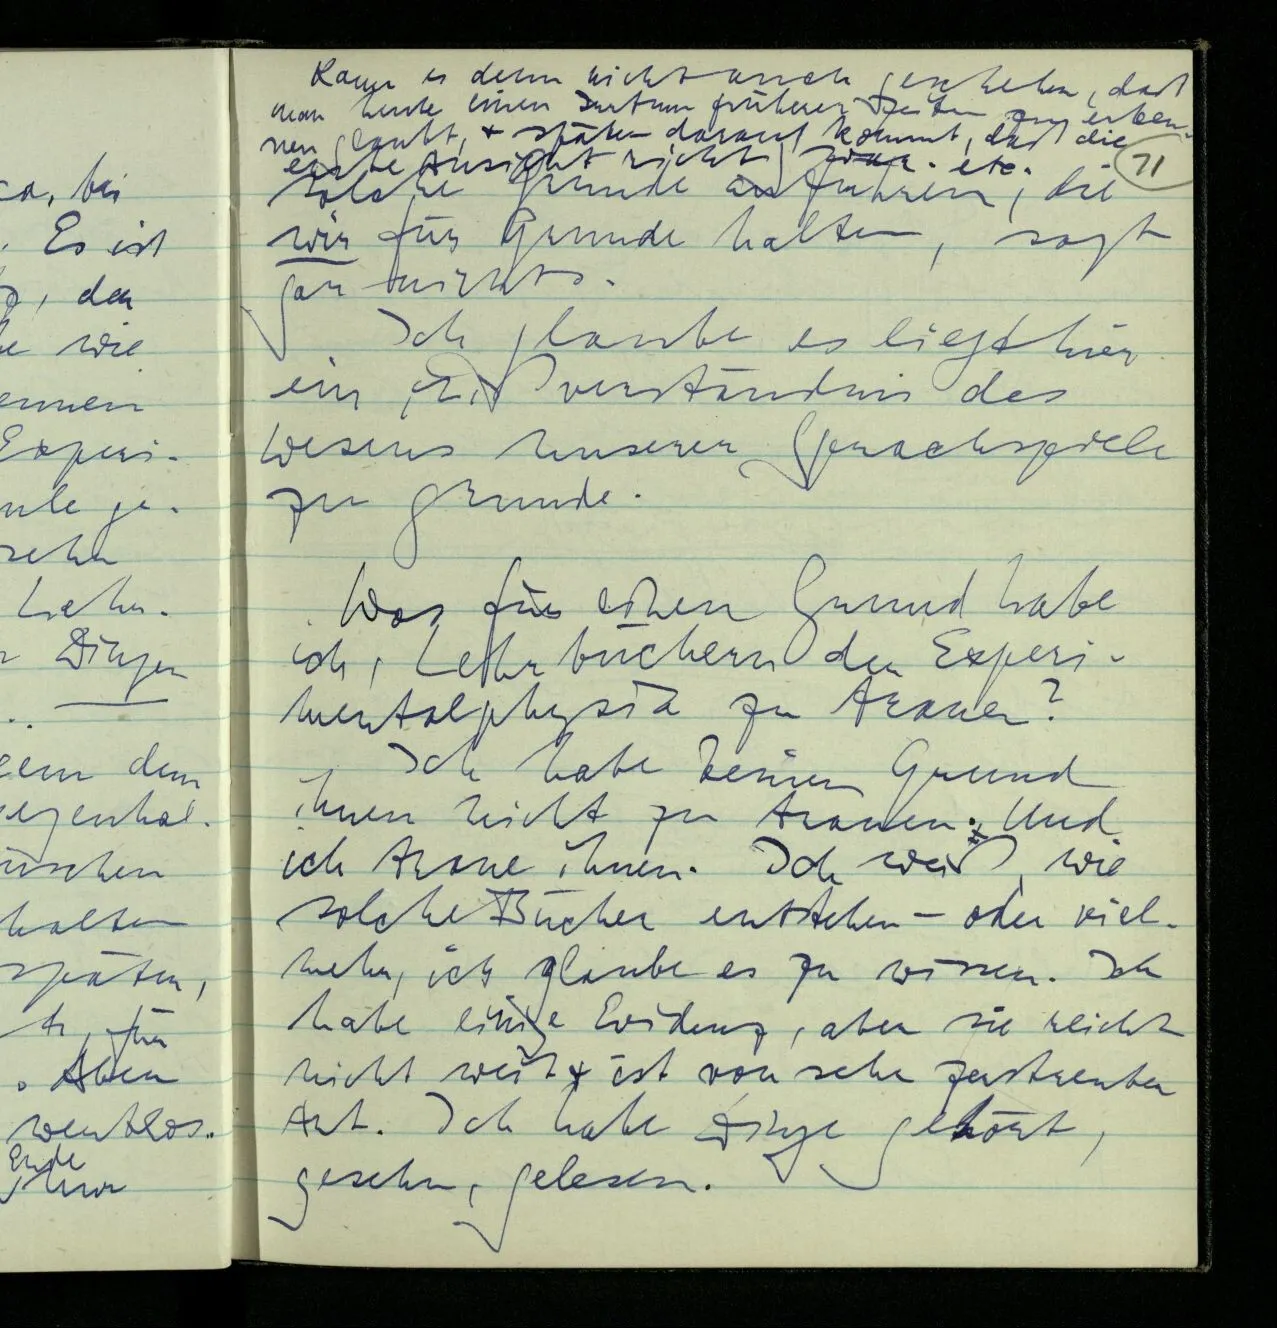 ca, bei
Es ist
, der
wie
ennen
Experi-
ule ge-
sehn
Lehr-
Dingen
dem
egenhal-
ischen
halten
später,
für
Aber
wertlos.
Ende
Kann es denn nicht auch geschehen, daß
man heute einen Irrtum früherer Zeiten zu erken-
nen glaubt, & später darauf kommt, daß die
erste Ansicht richtig war. etc.
71
solche Gründe anführen, die
wir für Gründe halten, sagt
gar nichts.
Ich glaube es liegt hier
ein Mißverständnis des
Wesens unserer Sprachspiele
zu grunde.
Was für einen Grund habe
ich, Lehrbüchern der Experi-
mentalphysik zu trauen?
Ich habe keinen Grund
ihnen nicht zu trauen. Und
ich traue ihnen. Ich weiß, wie
solche Bücher entstehen – oder viel-
mehr, ich glaube es zu wissen. Ich
habe einige Evidenz, aber sie reicht
nicht weit & ist von sehr zerstreuter
Art. Ich habe Dinge gehört,
gesehn, gelesen.